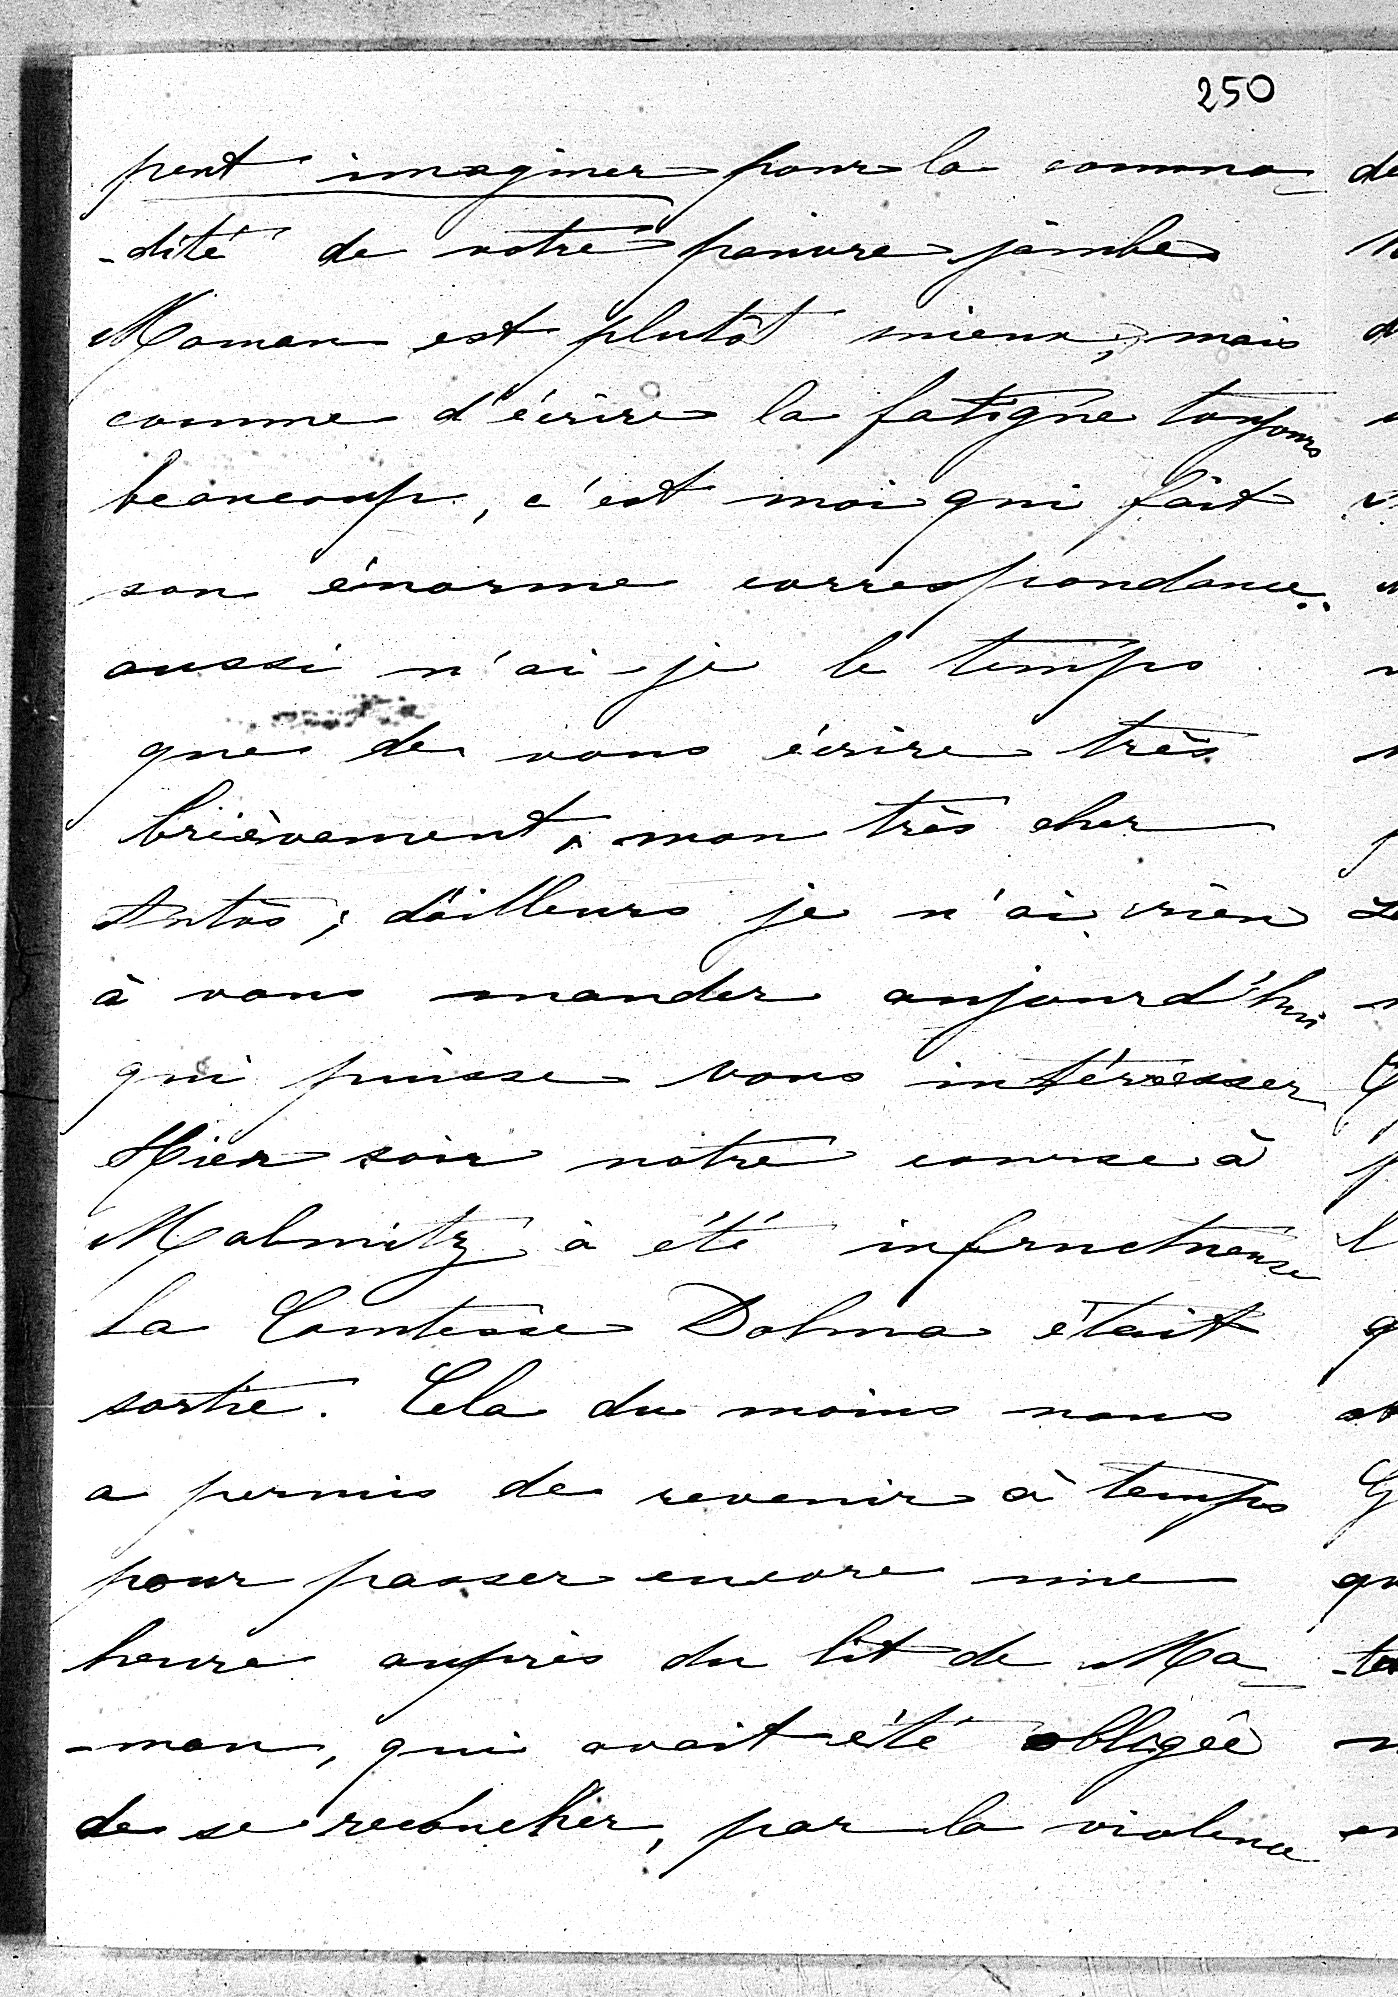 250
peut imaginer pour la commo-
-dité de votre pauvre jambe
Maman est plutôt mieux, mais
comme d'écrire la fatigue toujours
beaucoup, c'est moi qui fait
son énorme correspondance..
aussi n'ai-je le temps
que de vous écrire très
brièvement, mon très cher
Antos; d'ailleurs je n'ai rien
à vous mander aujourd'hui
qui puisse vous intéresser
Hier soir notre course à
Malmitz a été infructueuse
La Comtesse Dolma était
sortie. Cela du moins nous
a permis de revenir à temps
pour passer encore une
heure auprès du lit de Ma-
-man, qui avait été obligée
de se recoucher, par la violence